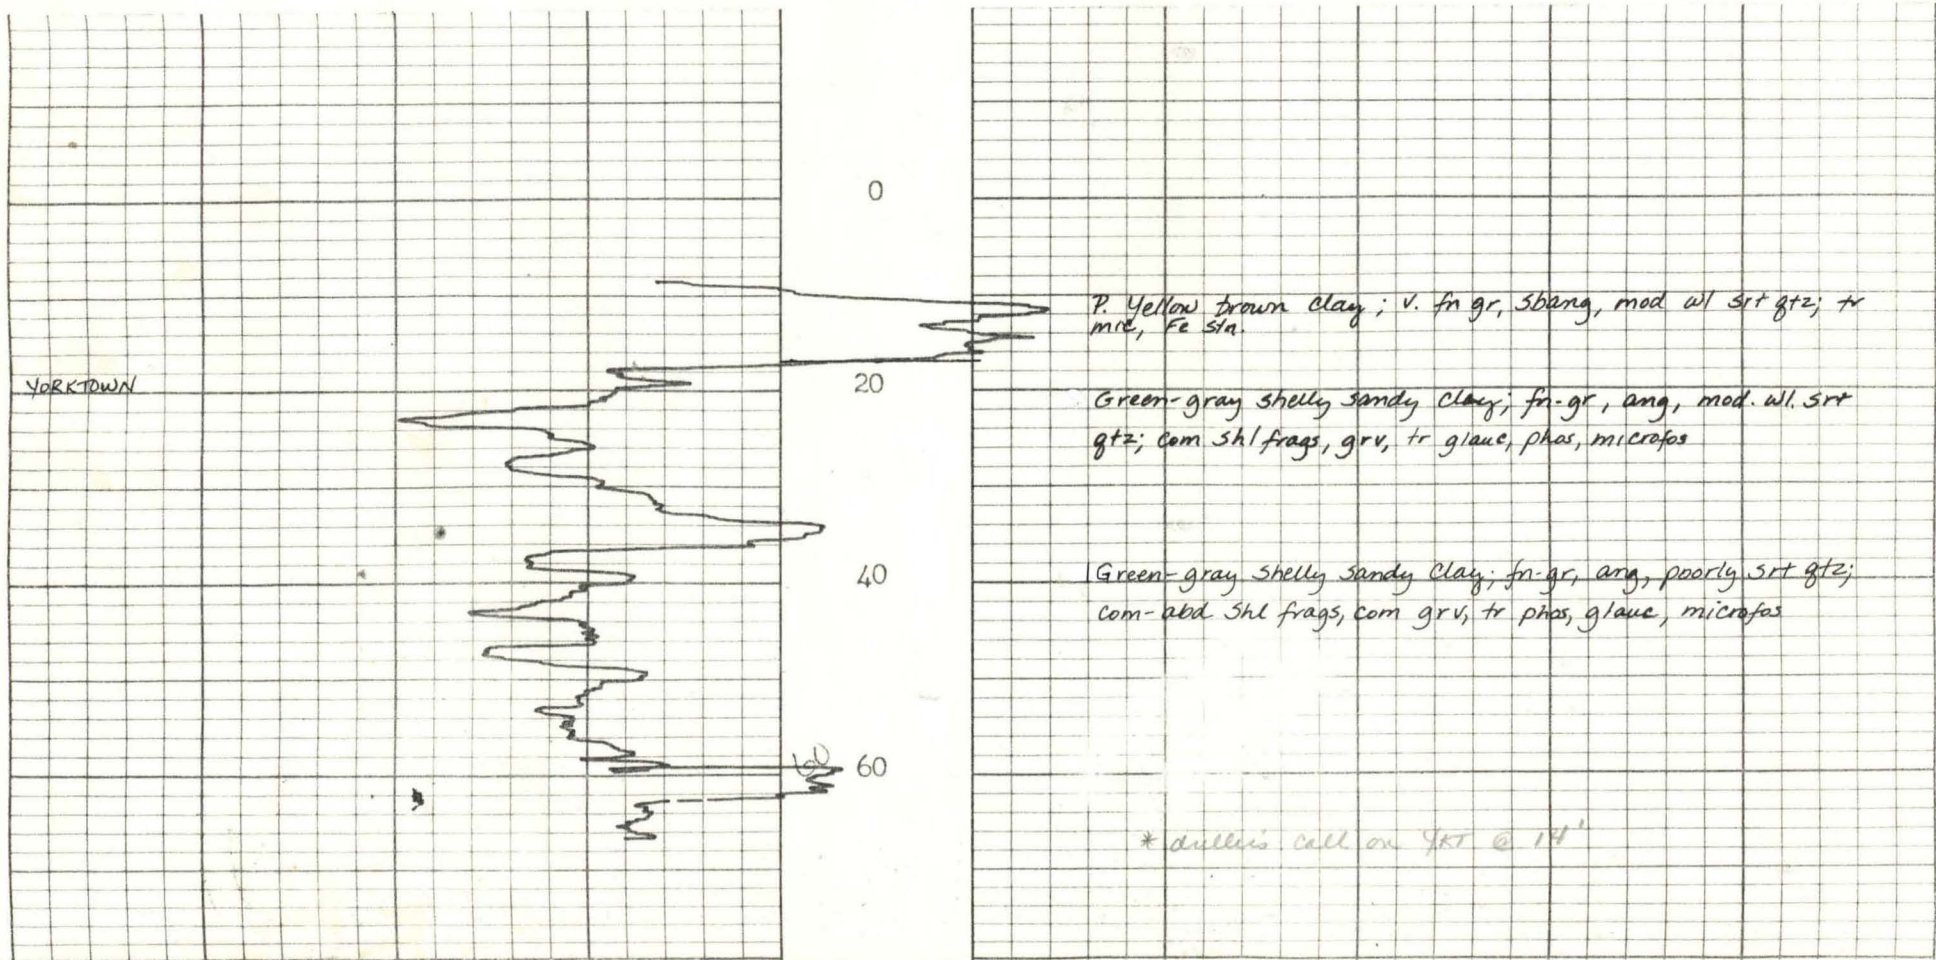 0
P. Yellow brown clay; v. fn gr, sbang, mod wl srt qtz; tr
mic, Fe stn.
YORKTOWN
20
Green-gray shelly sandy clay; fn-gr, ang, mod. wl. srt
qtz; com shl frags, grv, tr glauc, phos, microfos
40
Green-gray shelly sandy clay; fn-gr, ang, poorly srt qtz;
com-abd shl frags, com grv, tr phos, glauc, microfos
60
60
* driller's call on YKT @ 14'